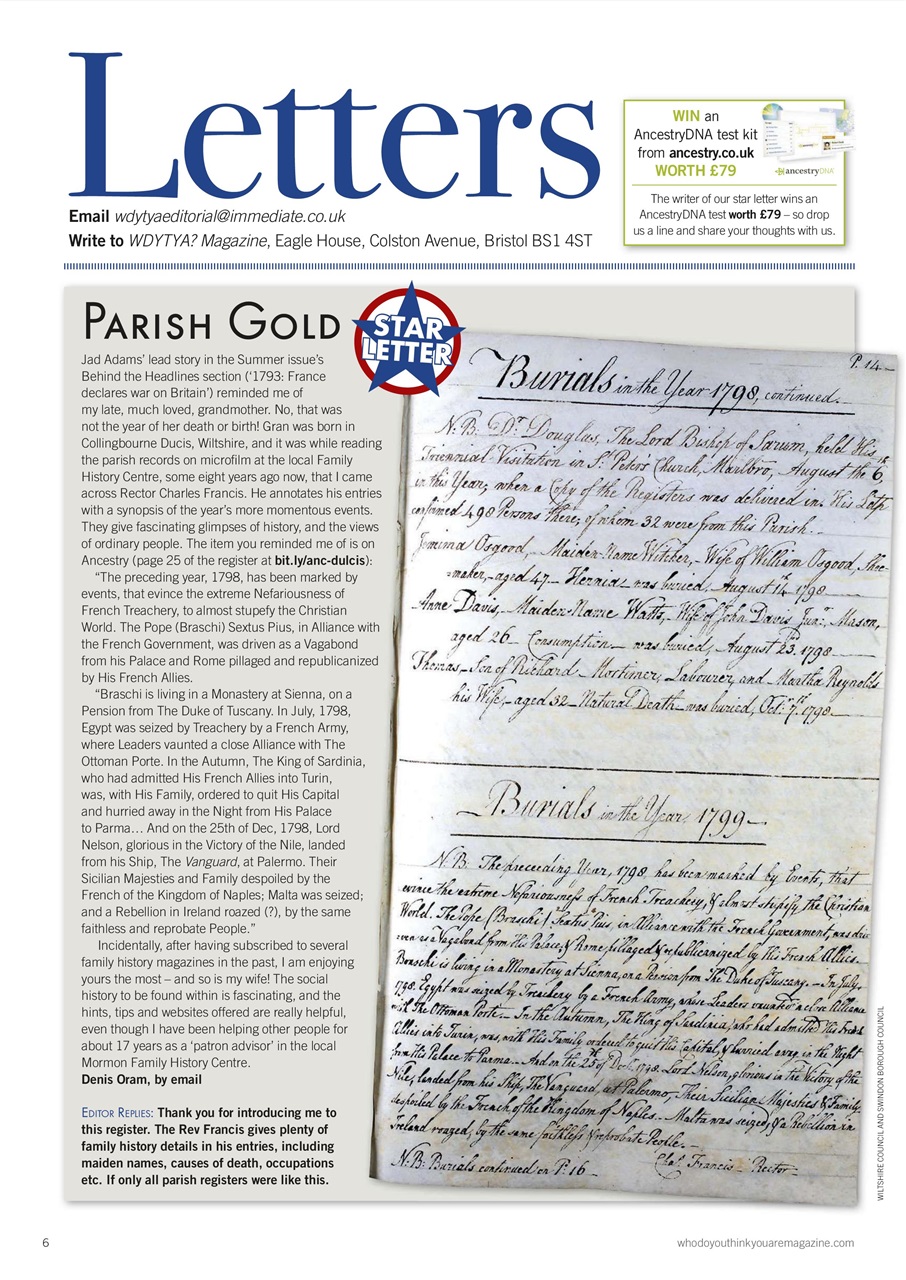 Letters
Email wdytyaeditorial@immediate.co.uk
Write to WDYTYA? Magazine, Eagle House, Colston Avenue, Bristol BS1 4ST
WIN an
AncestryDNA test kit
from ancestry.co.uk
WORTH £79
ancestryDNA
The writer of our star letter wins an
AncestryDNA test worth £79 – so drop
us a line and share your thoughts with us.
PARISH GOLD
STAR
LETTER
Jad Adams' lead story in the Summer issue's
Behind the Headlines section ('1793: France
declares war on Britain') reminded me of
my late, much loved, grandmother. No, that was
not the year of her death or birth! Gran was born in
Collingbourne Ducis, Wiltshire, and it was while reading
the parish records on microfilm at the local Family
History Centre, some eight years ago now, that I came
across Rector Charles Francis. He annotates his entries
with a synopsis of the year's more momentous events.
They give fascinating glimpses of history, and the views
of ordinary people. The item you reminded me of is on
Ancestry (page 25 of the register at bit.ly/anc-dulcis):
"The preceding year, 1798, has been marked by
events, that evince the extreme Nefariousness of
French Treachery, to almost stupefy the Christian
World. The Pope (Braschi) Sextus Pius, in Alliance with
the French Government, was driven as a Vagabond
from his Palace and Rome pillaged and republicanized
by His French Allies.
"Braschi is living in a Monastery at Sienna, on a
Pension from The Duke of Tuscany. In July, 1798,
Egypt was seized by Treachery by a French Army,
where Leaders vaunted a close Alliance with The
Ottoman Porte. In the Autumn, The King of Sardinia,
who had admitted His French Allies into Turin,
was, with His Family, ordered to quit His Capital
and hurried away in the Night from His Palace
to Parma… And on the 25th of Dec, 1798, Lord
Nelson, glorious in the Victory of the Nile, landed
from his Ship, The Vanguard, at Palermo. Their
Sicilian Majesties and Family despoiled by the
French of the Kingdom of Naples; Malta was seized;
and a Rebellion in Ireland roazed (?), by the same
faithless and reprobate People."
Incidentally, after having subscribed to several
family history magazines in the past, I am enjoying
yours the most – and so is my wife! The social
history to be found within is fascinating, and the
hints, tips and websites offered are really helpful,
even though I have been helping other people for
about 17 years as a 'patron advisor' in the local
Mormon Family History Centre.
Denis Oram, by email
EDITOR REPLIES: Thank you for introducing me to
this register. The Rev Francis gives plenty of
family history details in his entries, including
maiden names, causes of death, occupations
etc. If only all parish registers were like this.
P. 14
Burials in the Year 1798, continued.
N.B. Dr. Douglas, The Lord Bishop of Sarum, held His
Triennial Visitation in St. Peter's Church, Marlbro, August the 6,th
in this Year; when a Copy of the Registers was delivered in. His Lordp
confirmed 498 Persons there; of whom 32 were from this Parish.
Jemima Osgood, Maiden Name Witcher, Wife of William Osgood, Shoe-
=maker, aged 47 Hernia was buried, August 14, 1798
Anne Davis, Maiden Name Watts, Wife of John Davis Junr. Mason,
aged 26 Consumption was buried, August 23. 1798
Thomas, Son of Richard Mortimer, Labourer, and Martha Reynolds
his Wife, aged 32 Natural Death was buried, Octr. 7th. 1798
Burials in the Year 1799
N.B. The preceeding Year, 1798 has been marked by Events, that
evince the extreme Nefariousness of French Treachery, & almost stupify the Christian
World. The Pope (Braschi) Sextus Pius, in Alliance with the French Government, was driv-
-ven as a Vagabond from His Palace, & Rome pillaged & republicanized by His French Allies.
Braschi is living in a Monastery at Sienna, on a Pension from The Duke of Tuscany. In July,
1798. Egypt was seized by Treachery by a French Army, whose Leaders vaunted a close Alliance
with The Ottoman Porte. In the Autumn, The King of Sardinia, who had admitted His French
Allies into Turin, was, with His Family ordered to quit His Capital, & hurried away in the Night
from His Palace to Parma. And on the 25th of Decr. 1798. Lord Nelson, glorious in the Victory of the
Nile, landed from his Ship, The Vanguard, at Palermo, Their Sicilian Majesties & Family
despoiled by the French of the Kingdom of Naples. Malta was seized; & a Rebellion in
Ireland roazed, by the same faithless & reprobate People.
N.B. Burials continued on P. 16
Chas. Francis Rector
WILTSHIRE COUNCIL AND SWINDON BOROUGH COUNCIL
6
whodoyouthinkyouaremagazine.com